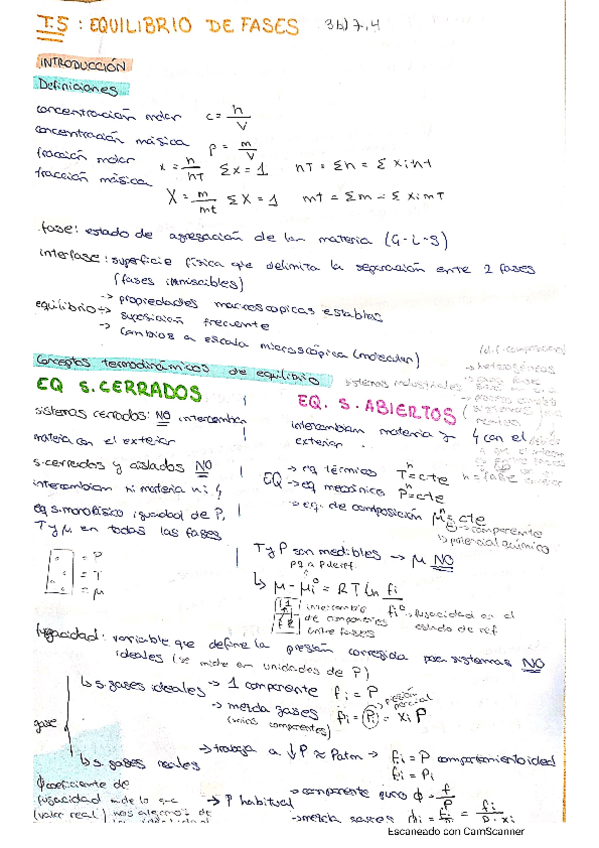 T.5: EQUILIBRIO DE FASES 3b) 7,4
INTRODUCCIÓN
Definiciones
concentración molar c = n/V
concentración másica ρ = m/V
fracción molar x = n/nT Σx = 1 nT = Σn = Σ xi nt
fracción másica X = m/mt ΣX = 1 mt = Σm = Σ xi mT
fase: estado de agregación de la materia (G-L-S)
interfase: superficie física que delimita la separación entre 2 fases
(fases inmiscibles)
equilibrio → propiedades macroscopicas estables
→ frecuente
→ cambios a escala microscópica (molecular)
conceptos termodinámicos de equilibrio
EQ S.CERRADOS
sistemas cerrados: NO intercambian
materia con el exterior
s.cerrados y aislados NO
intercambian ni materia ni
igualdad de P,
T y μ en todas las fases
= P
= T
= μ
sistemas industriales
heterogéneos
EQ. S. ABIERTOS
intercambian materia y con el
exterior
EQ → eq térmico T = cte n = fase
→ eq mecánico P = cte
→ eq. de composición μ = cte
componente
potencial químico
T y P son medibles → μ NO
μ - μi° = RT ln fi/fi°
intercambio
de componentes
entre fases
fi° → fugacidad en el
estado de ref
fugacidad: variable que define la presión corregida para sistemas NO
ideales (se mide en unidades de P)
gase
s. gases ideales → 1 componente fi = P
→ mezcla gases fi = Pi = xi P
(varios componentes)
presión parcial
s. gases reales
→ trabaja a ↓P ≈ Patm → fi = P comportamiento ideal
fi = Pi
→ P habitual
→ componente puro ϕ = f/P
→ mezcla gases ϕi = fi/Pi = fi/P·xi
ϕ coeficiente de
fugacidad mide lo que
(valor real) nos alejamos de
Escaneado con CamScanner